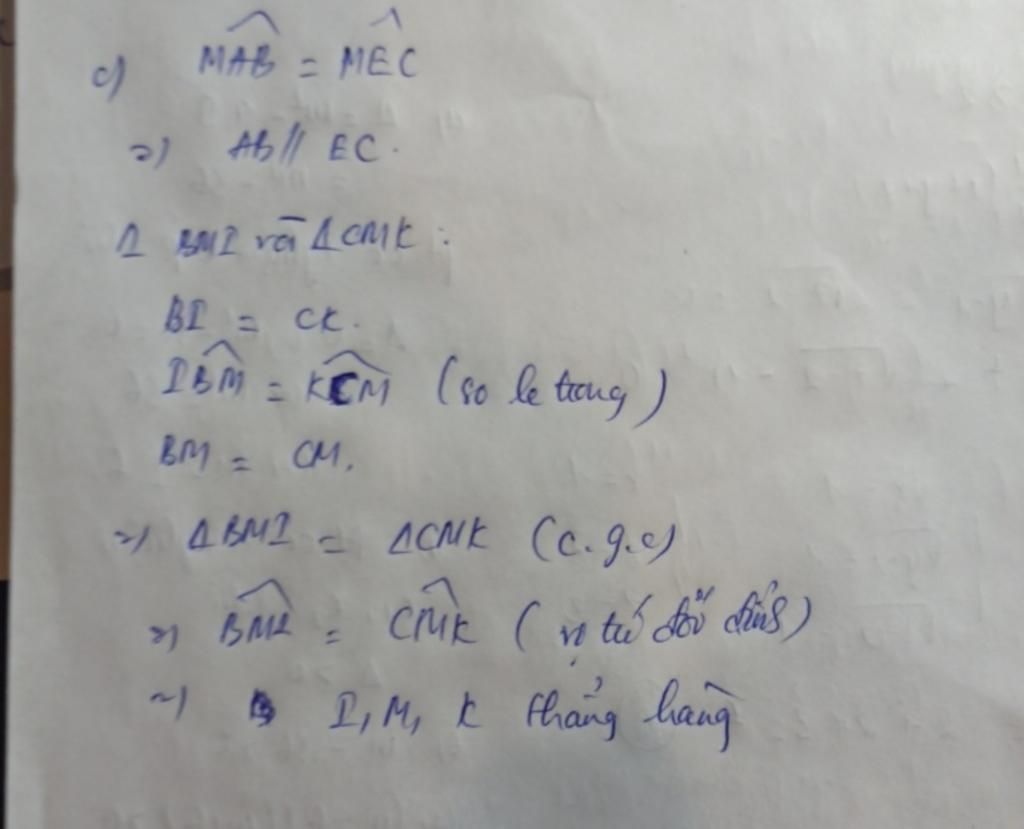 c) MAB = MEC
=) AB // EC.
Δ BMI và ΔCMK :
BI = CK.
IBM = KCM (so le trong)
BM = CM.
=) ΔBMI = ΔCMK (c.g.c)
=) BMI = CMK (vị trí đối đỉnh)
=) I, M, K thẳng hàng